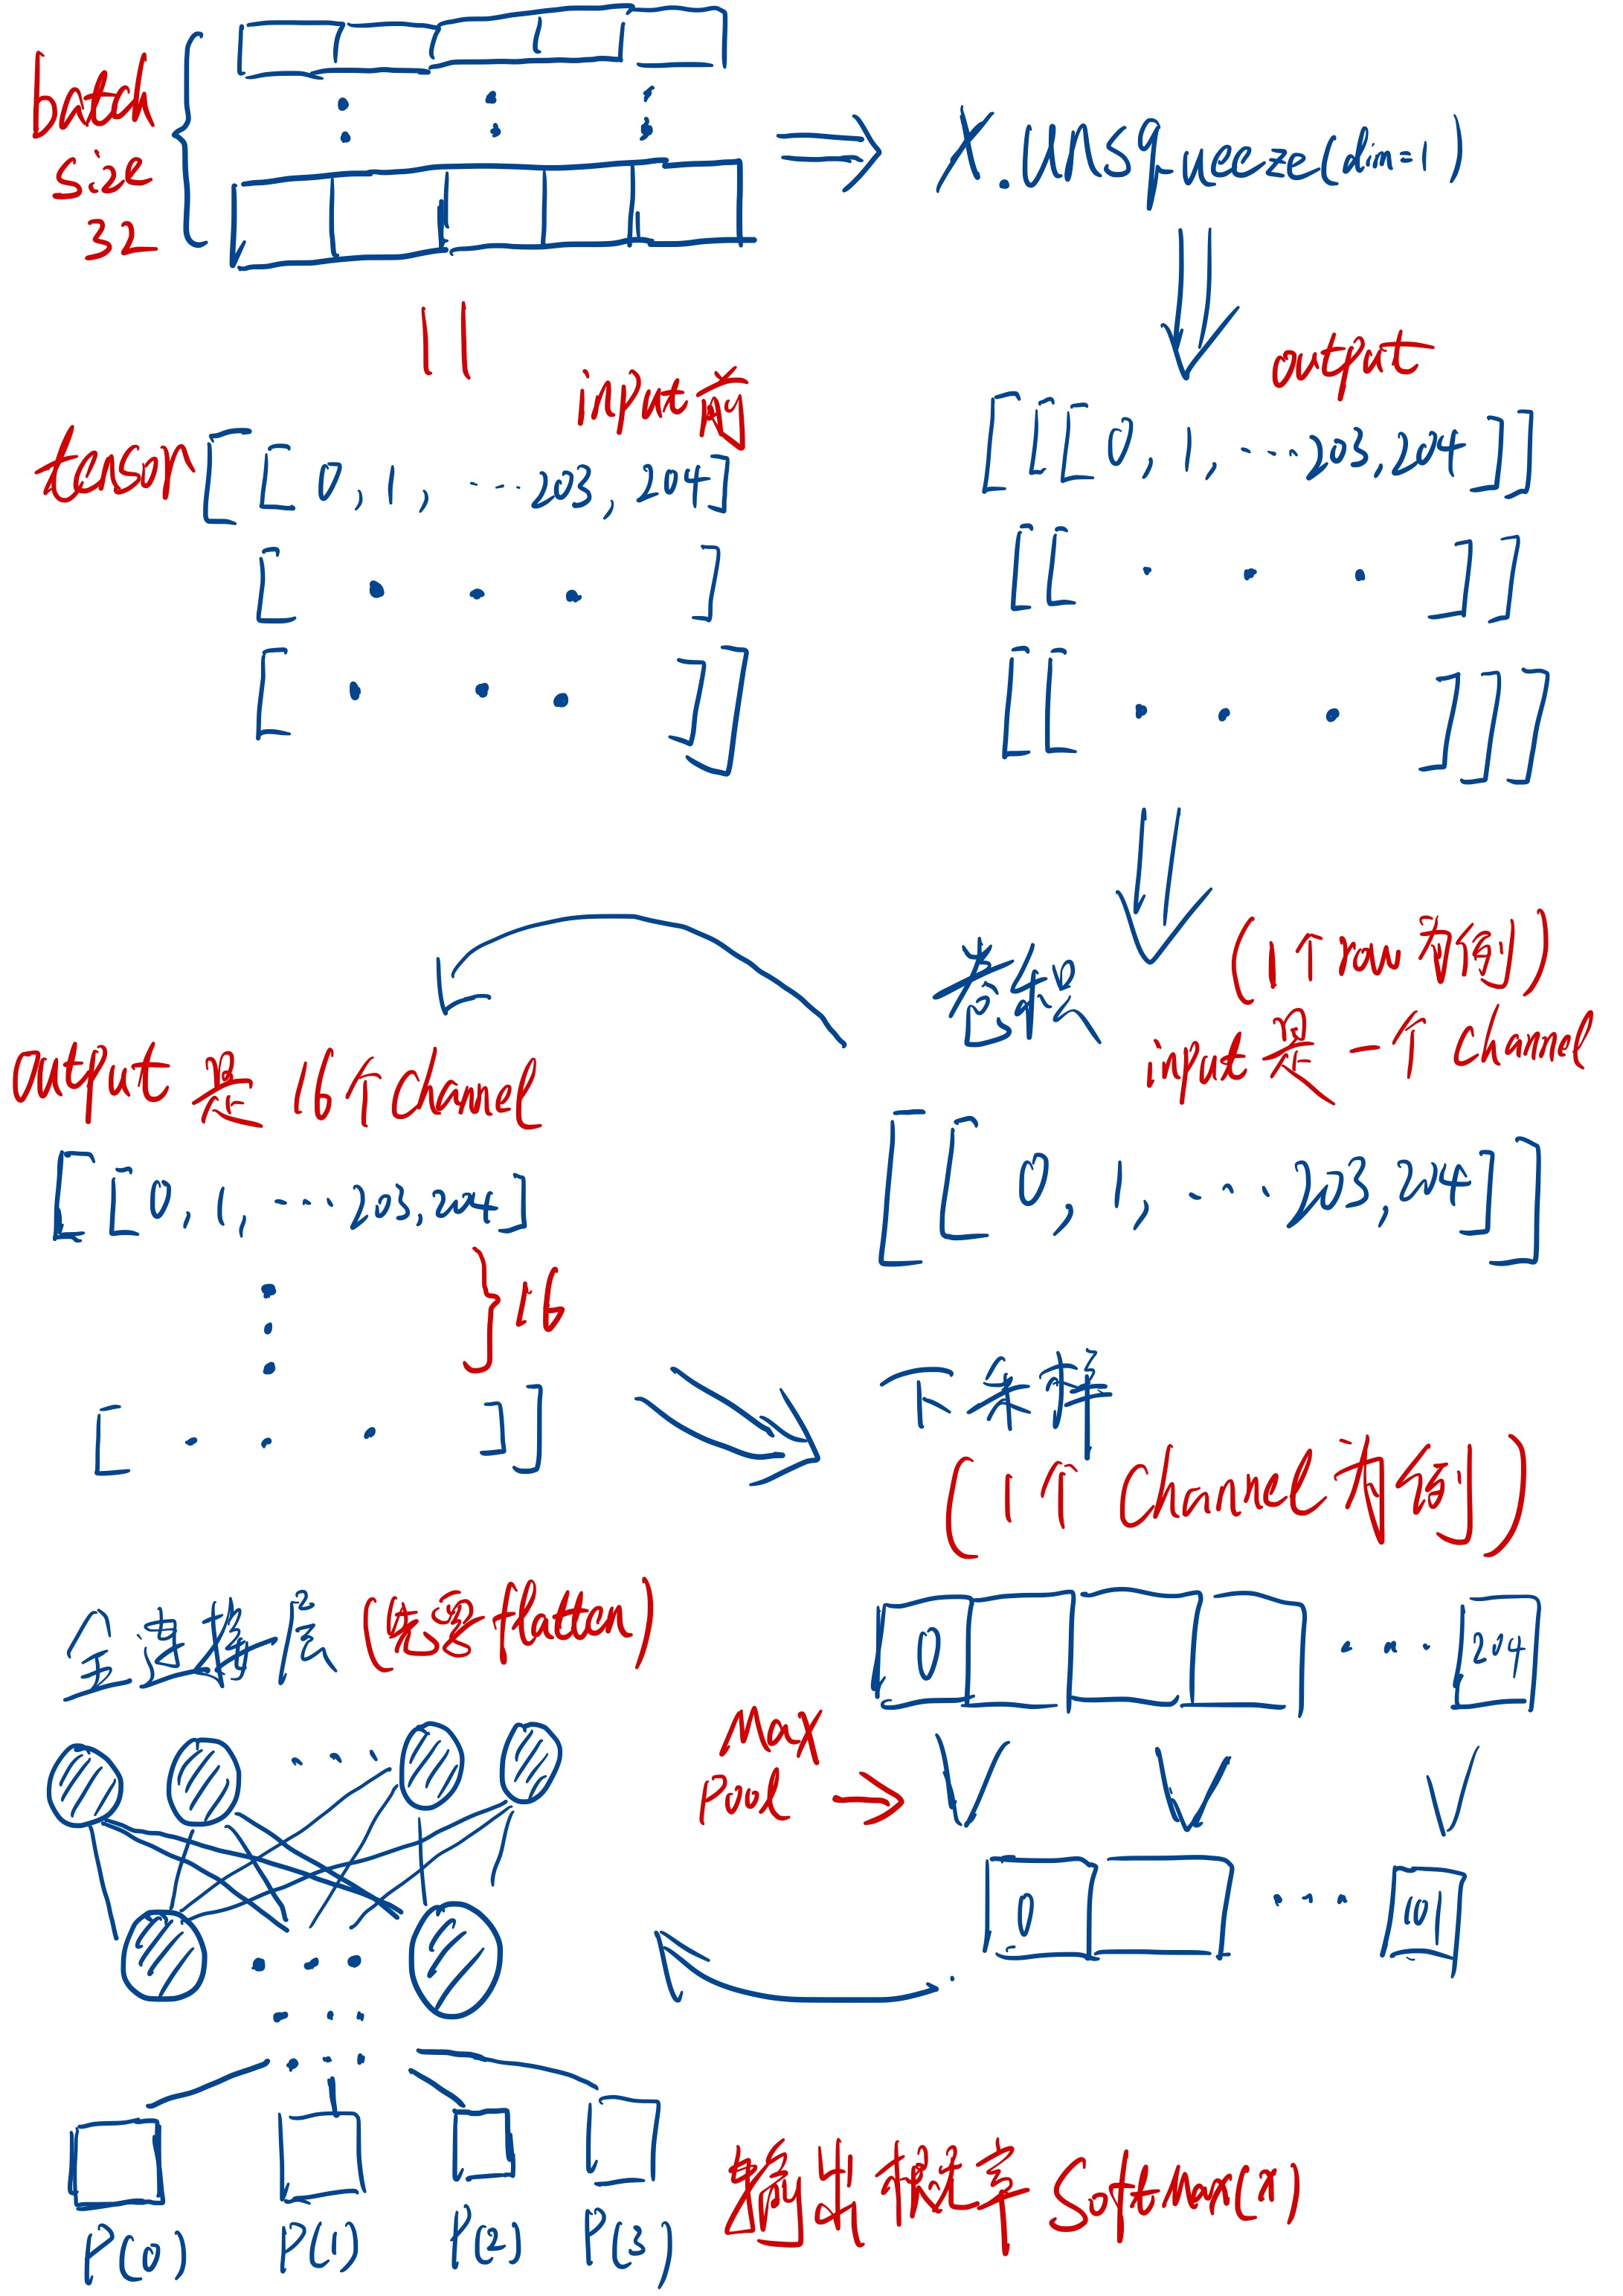 batch
size
32
X.unsqueeze(dim=1)
input 前
tensor [[0, 1, ... 203, 204]
[ . . . ]
[ . . . ]]
output
[[[0, 1, ... 203, 204]]
[[ . . . ]]
[[ . . . ]]]
卷积
(1个row 为例)
input 是一个 channel
[[0, 1, ... 203, 204]]
output 是 16个channel
[[0, 1, ... 203, 204]
16
[ . . . ]]
下采样
(1个 Channel 为例)
0 ... 204
Max
Pool
0 ... 101
全连接层 (先要flatten)
... 
P(0) P(1) P(2) P(3)
输出概率 Softmax(x)